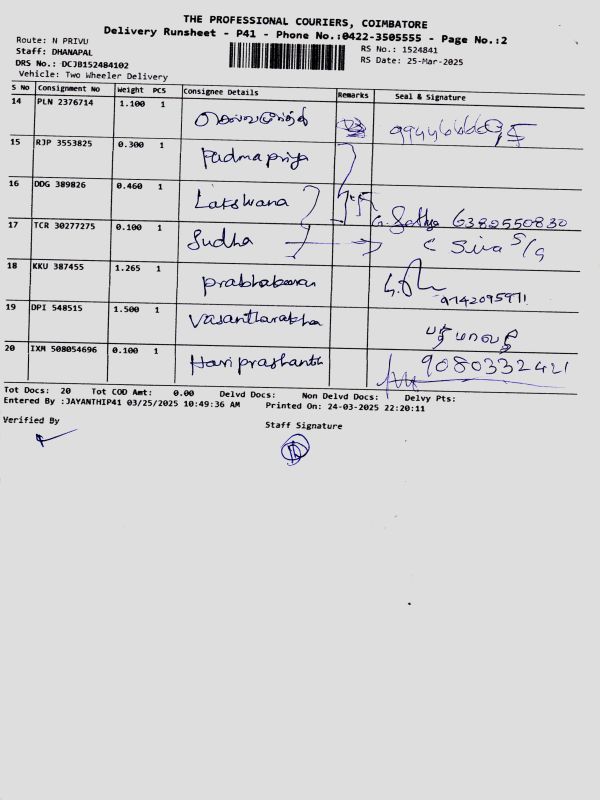 THE PROFESSIONAL COURIERS, COIMBATORE
Delivery Runsheet - P41 - Phone No.:0422-3505555 - Page No.:2
Route: N PRIVU
RS No.: 1524841
Staff: DHANAPAL
RS Date: 25-Mar-2025
DRS No.: DCJB152484102
Vehicle: Two Wheeler Delivery
S No Consignment No Weight PCS Consignee Details Remarks Seal & Signature
14 PLN 2376714 1.100 1
15 RJP 3553825 0.300 1 Padma priya
16 DDG 389826 0.460 1 Lakswana G. Sathya 6382550830
17 TCR 30277275 0.100 1 Sudha C Siva S/g
18 KKU 387455 1.265 1 prabhakaran 9742095971
19 DPI 548515 1.500 1 பத்மாவதி
20 IXM 508054696 0.100 1 Hari prashanth 9080332421
Tot Docs: 20 Tot COD Amt: 0.00 Delvd Docs: Non Delvd Docs: Delvy Pts:
Entered By :JAYANTHIP41 03/25/2025 10:49:36 AM Printed On: 24-03-2025 22:20:11
Verified By
Staff Signature